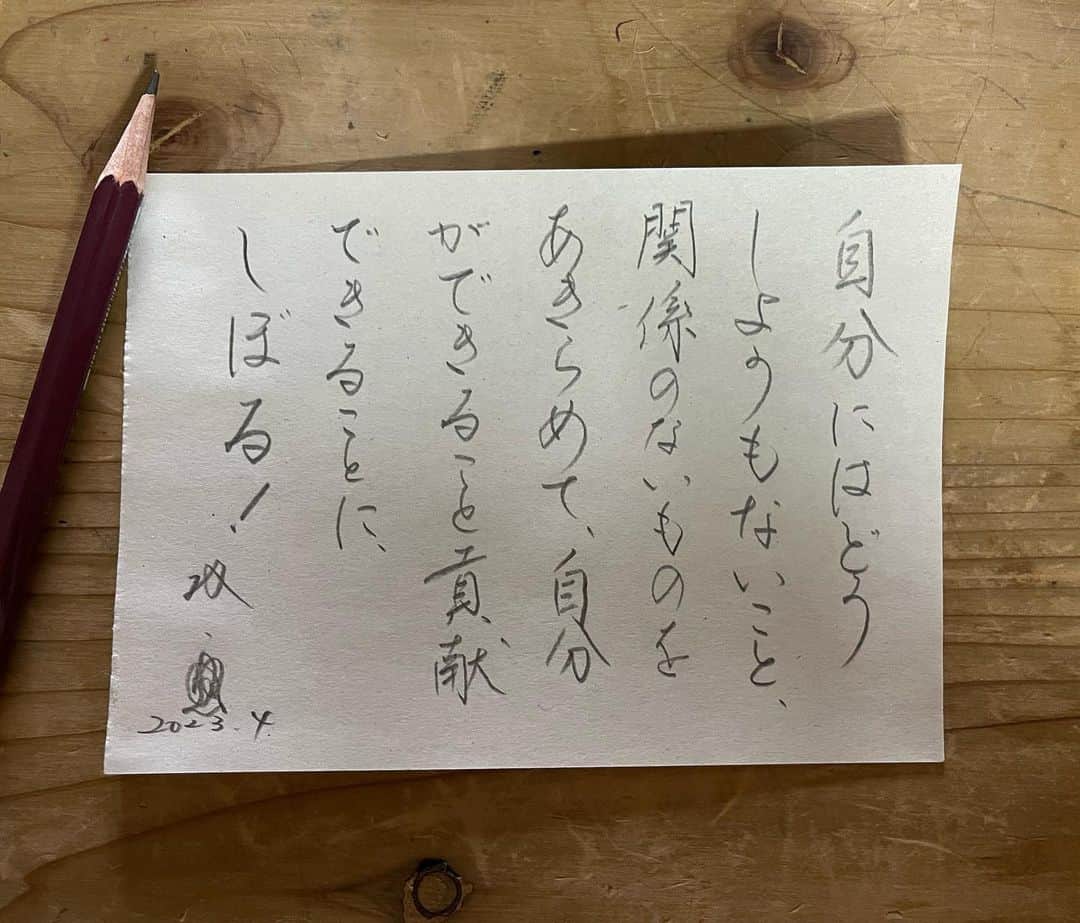 自分にはどう
しようもないこと、
関係のないものを
あきらめて、自分
ができること貢献
できることに、
しぼる!
2023.4.